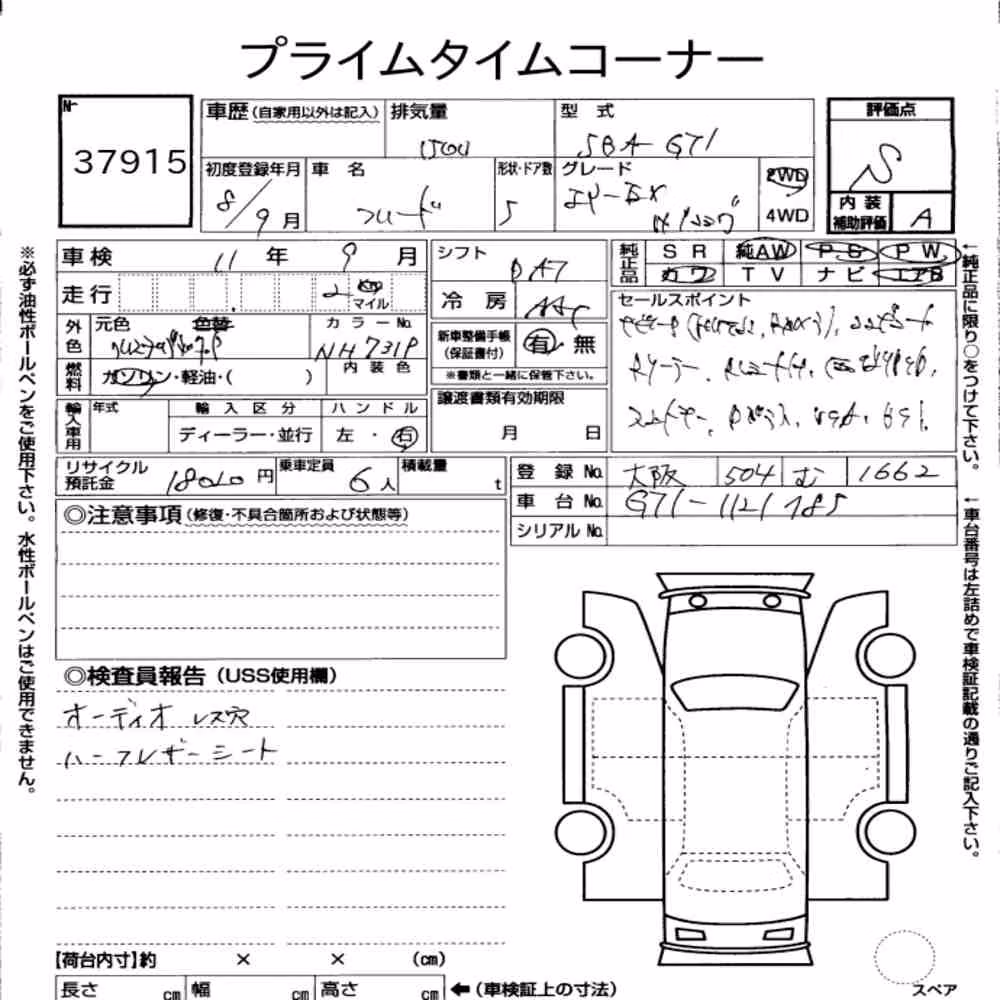 プライムタイムコーナー
№
37915
車歴(自家用以外は記入) 排気量 型 式
1500 5BA-GT1
初度登録年月 車 名 形状・ドア数 グレード
8/9 月 フリード 5 2WD
4WD
評価点
S
内 装
補助評価 A
車検 11 年 9 月 シフト DAT
走行 2 km
マイル 冷 房 AAC
外色 元色 色替 カラーNo.
NH731P
新車整備手帳
(保証書付) 有 無
燃料 ガソリン・軽油・( ) 内 装 色
※書類と一緒に保管下さい。
輸入車用 年式 輸 入 区 分 ハ ン ド ル
ディーラー・並行 左 ・ 右
譲渡書類有効期限
月 日
純正品 S R 純AW P S P W
カワ T V ナ ビ エアB
セールスポイント
リサイクル
預託金 18010 円 乗車定員 6 人 積載量 t
登 録 No. 大阪 504 む 1662
車 台 No. GT1-1121785
シリアル No.
◎注意事項(修復・不具合箇所および状態等)
◎検査員報告(USS使用欄)
オーディオ レス穴
ハーフレザーシート
【荷台内寸】約 × × (cm)
長さ cm 幅 cm 高さ cm ←(車検証上の寸法)
スペア
※必ず油性ボールペンをご使用下さい。水性ボールペンはご使用できません。
←純正品に限り○をつけて下さい。
←車台番号は左詰めで車検証記載の通りご記入下さい。